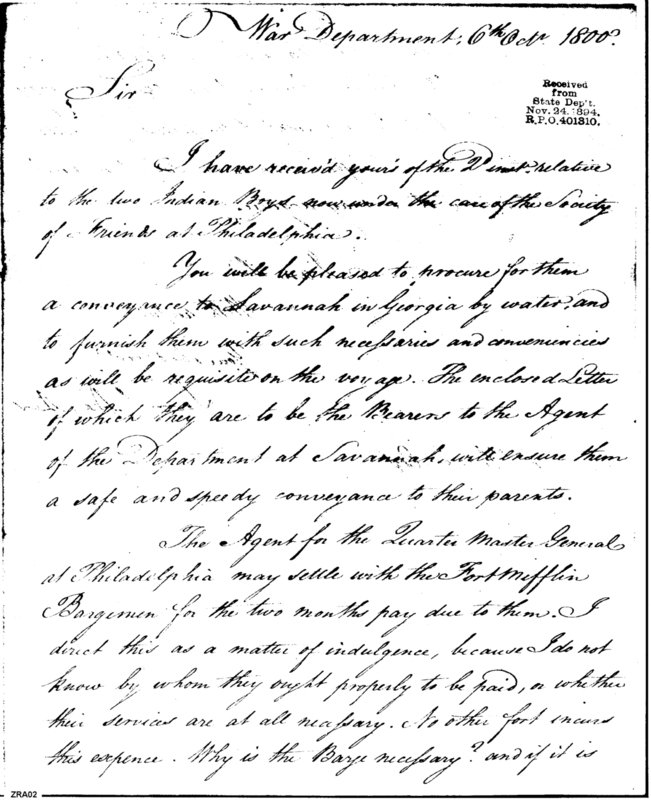 War Department, 6th Octr. 1800.
Sir
Received
from
State Dep't.
Nov. 24. 1894.
R.P.O. 401310.
I have receiv'd your's of the 2d inst. relative
to the two Indian Boys now under the care of the Society
of Friends at Philadelphia.
You will be pleased to procure for them
a conveyance to Savannah in Georgia by water, and
to furnish them with such necessaries and conveniencies
as will be requisite on the voyage. The enclosed Letter
of which they are to be the Bearers to the Agent
of the Department at Savannah, will ensure them
a safe and speedy conveyance to their parents.
The Agent for the Quarter Master General
at Philadelphia may settle with the Fort Mifflin
Bargemen for the two months pay due to them. I
direct this as a matter of indulgence, because I do not
know by whom they ought properly to be paid, or whether
their services are at all necessary. No other fort incurs
this expence. Why is the Barge necessary? and if it is
ZRA02